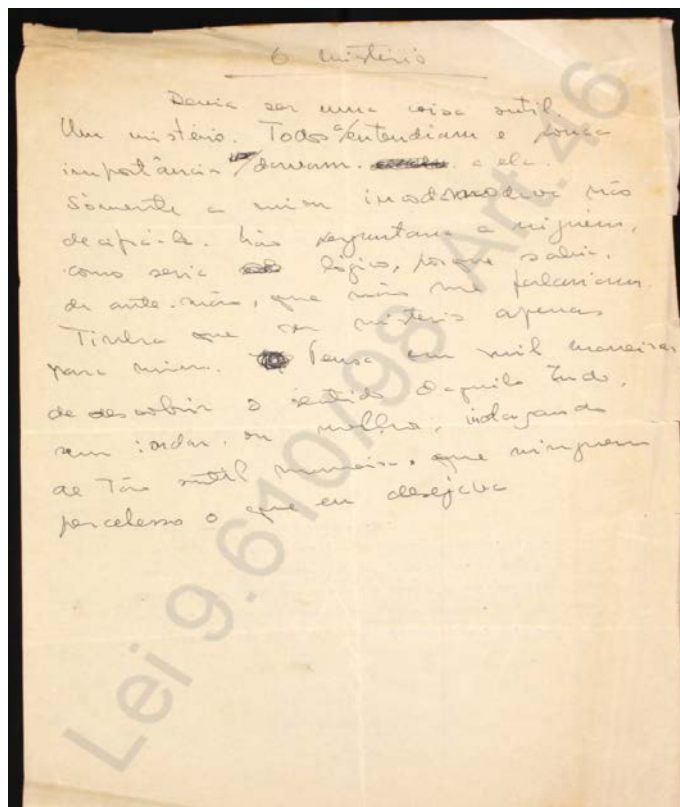 O mistério
Devia ser uma coisa sutil.
Um mistério. Todos a entendiam e pouca
importância davam. a ela.
Sòmente a mim incomodava não
decifrá-la. Não perguntava a ninguém,
como seria lógico, porque sabia,
de ante-mão, que não me falariam.
Tinha que ser mistério apenas
para mim. Pensa em mil maneiras
de descobrir o sentido daquilo tudo,
sem indagar, ou melhor, indagando
de tão sutil maneira, que ninguem
percebesse o que eu desejava
Lei 9.610/98 Art.46